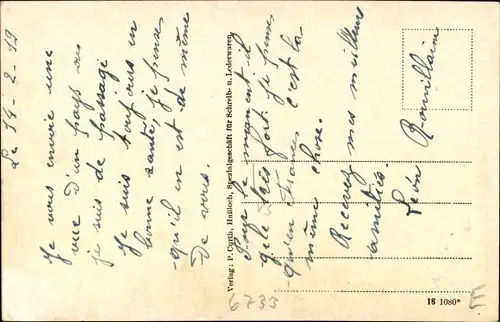 Le 14-2-19
Je vous envoie une
vue d'un pays ou
je suis de passage
Je suis toujours en
bonne santé, je pense
qu'il en est de même
de vous.
Pour le moment il
gele très fort je pense
qu'en France c'est la
même chose.
Recevez mes meilleures
amitiés.
Léon
Verlag: P. Curth, Haßloch, Spezialgeschäft für Schreib- u. Lederwaren.
18 1080*
6733
E